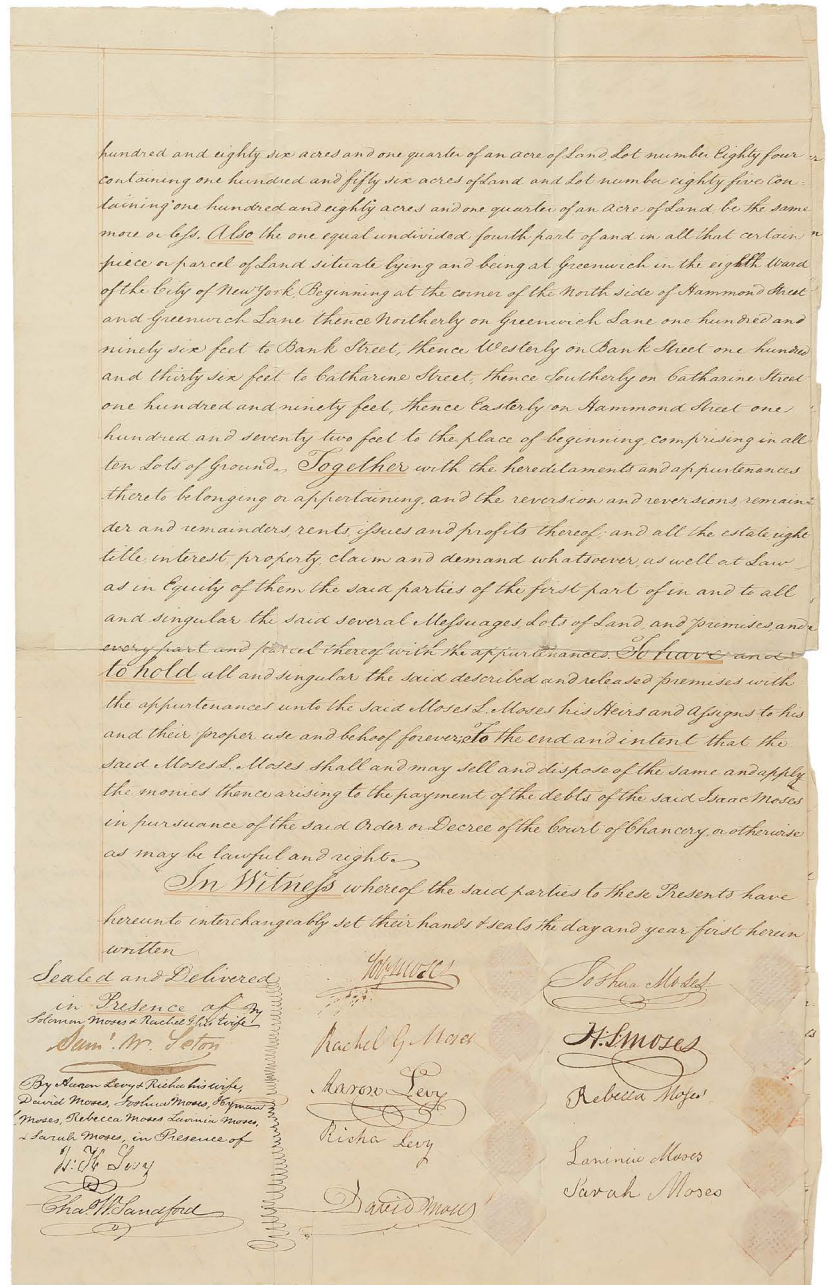 hundred and eighty six acres and one quarter of an acre of Land, Lot number Eighty four
containing one hundred and fifty six acres of Land and Lot number eighty five Con-
taining one hundred and eighty acres and one quarter of an Acre of Land be the same
more or less. Also the one equal undivided fourth part of and in all that certain
piece or parcel of Land situate lying and being at Greenwich in the eighth Ward
of the City of New York, Beginning at the corner of the North side of Hammond Street
and Greenwich Lane thence Northerly on Greenwich Lane one hundred and
ninety six feet to Bank Street, thence Westerly on Bank Street one hundred
and thirty six feet to Catharine Street, thence Southerly on Catharine Street
one hundred and ninety feet, thence Easterly on Hammond Street one
hundred and seventy two feet to the place of beginning, comprising in all
ten Lots of Ground. Together with the hereditaments and appurtenances
thereto belonging or appertaining, and the reversion and reversions, remain-
der and remainders, rents, issues and profits thereof, and all the estate right
title, interest, property claim and demand whatsoever, as well at Law
as in Equity of them the said parties of the first part of in and to all
and singular the said several Messuages, Lots of Land, and premises, and
every part and parcel thereof with the appurtenances. To have and
to hold all and singular the said described and released premises with
the appurtenances unto the said Moses L. Moses his Heirs and Assigns to his
and their proper use and behoof forever, To the end and intent that the
said Moses L. Moses shall and may sell and dispose of the same and apply
the monies thence arising to the payment of the debts of the said Isaac Moses
in pursuance of the said Order or Decree of the Court of Chancery, or otherwise
as may be lawful and right.
In Witness whereof the said parties to these Presents have
hereunto interchangeably set their hands & seals the day and year first herein
written
Sealed and Delivered
in Presence of by
Solomon Moses & Rachel G his Wife
Saml. W. Seton
By Aaron Levy & Richa his wife,
David Moses, Joshua Moses, Hyman
Moses, Rebecca Moses Lavinia Moses,
& Sarah Moses, in Presence of
Levy
Chas. W Sandford
Moses
Rachel G Moses
Aaron Levy
Richa Levy
David Moses
Joshua Moses
H. S Moses
Rebecca Moses
Lavinia Moses
Sarah Moses